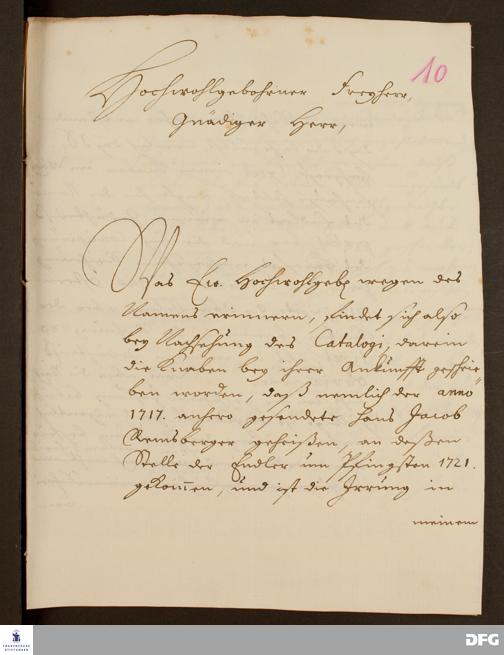 10
Hochwohlgebohrner Freyherr,
Gnädiger Herr,
Was Ew. Hochwohlgeb. wegen des
Namens erinnern, findet sich also
bey Nachsehung des Catalogi, darein
die Knaben bey ihrer Ankunfft geschrie-
ben worden, daß nemlich der anno
1717. anhero gesendete Hans Jacob
Remsberger geheißen, an deßen
Stelle der Endler um Pfingsten 1721.
gekommen, und ist die Irrung in
meinem
FRANCKESCHE
STIFTUNGEN
DFG